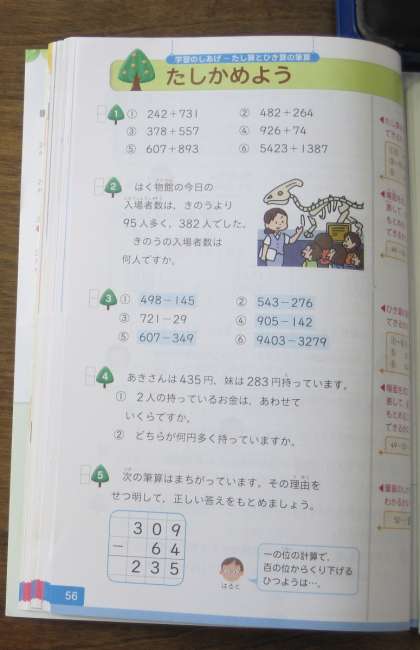 学習のしあげ－たし算とひき算の筆算
たしかめよう
1 ① 242＋731 ② 482＋264
③ 378＋557 ④ 926＋74
⑤ 607＋893 ⑥ 5423＋1387
2 はく物館の今日の
入場者数は、きのうより
95人多く、382人でした。
きのうの入場者数は
何人ですか。
3 ① 498－145 ② 543－276
③ 721－29 ④ 905－142
⑤ 607－349 ⑥ 9403－3279
4 あきさんは435円、妹は283円持っています。
① 2人の持っているお金は、あわせて
いくらですか。
② どちらが何円多く持っていますか。
5 次の筆算はまちがっています。その理由を
せつ明して、正しい答えをもとめましょう。
309
－ 64
235
一の位の計算で、
百の位からくり下げる
ひつようは…。
はると
56